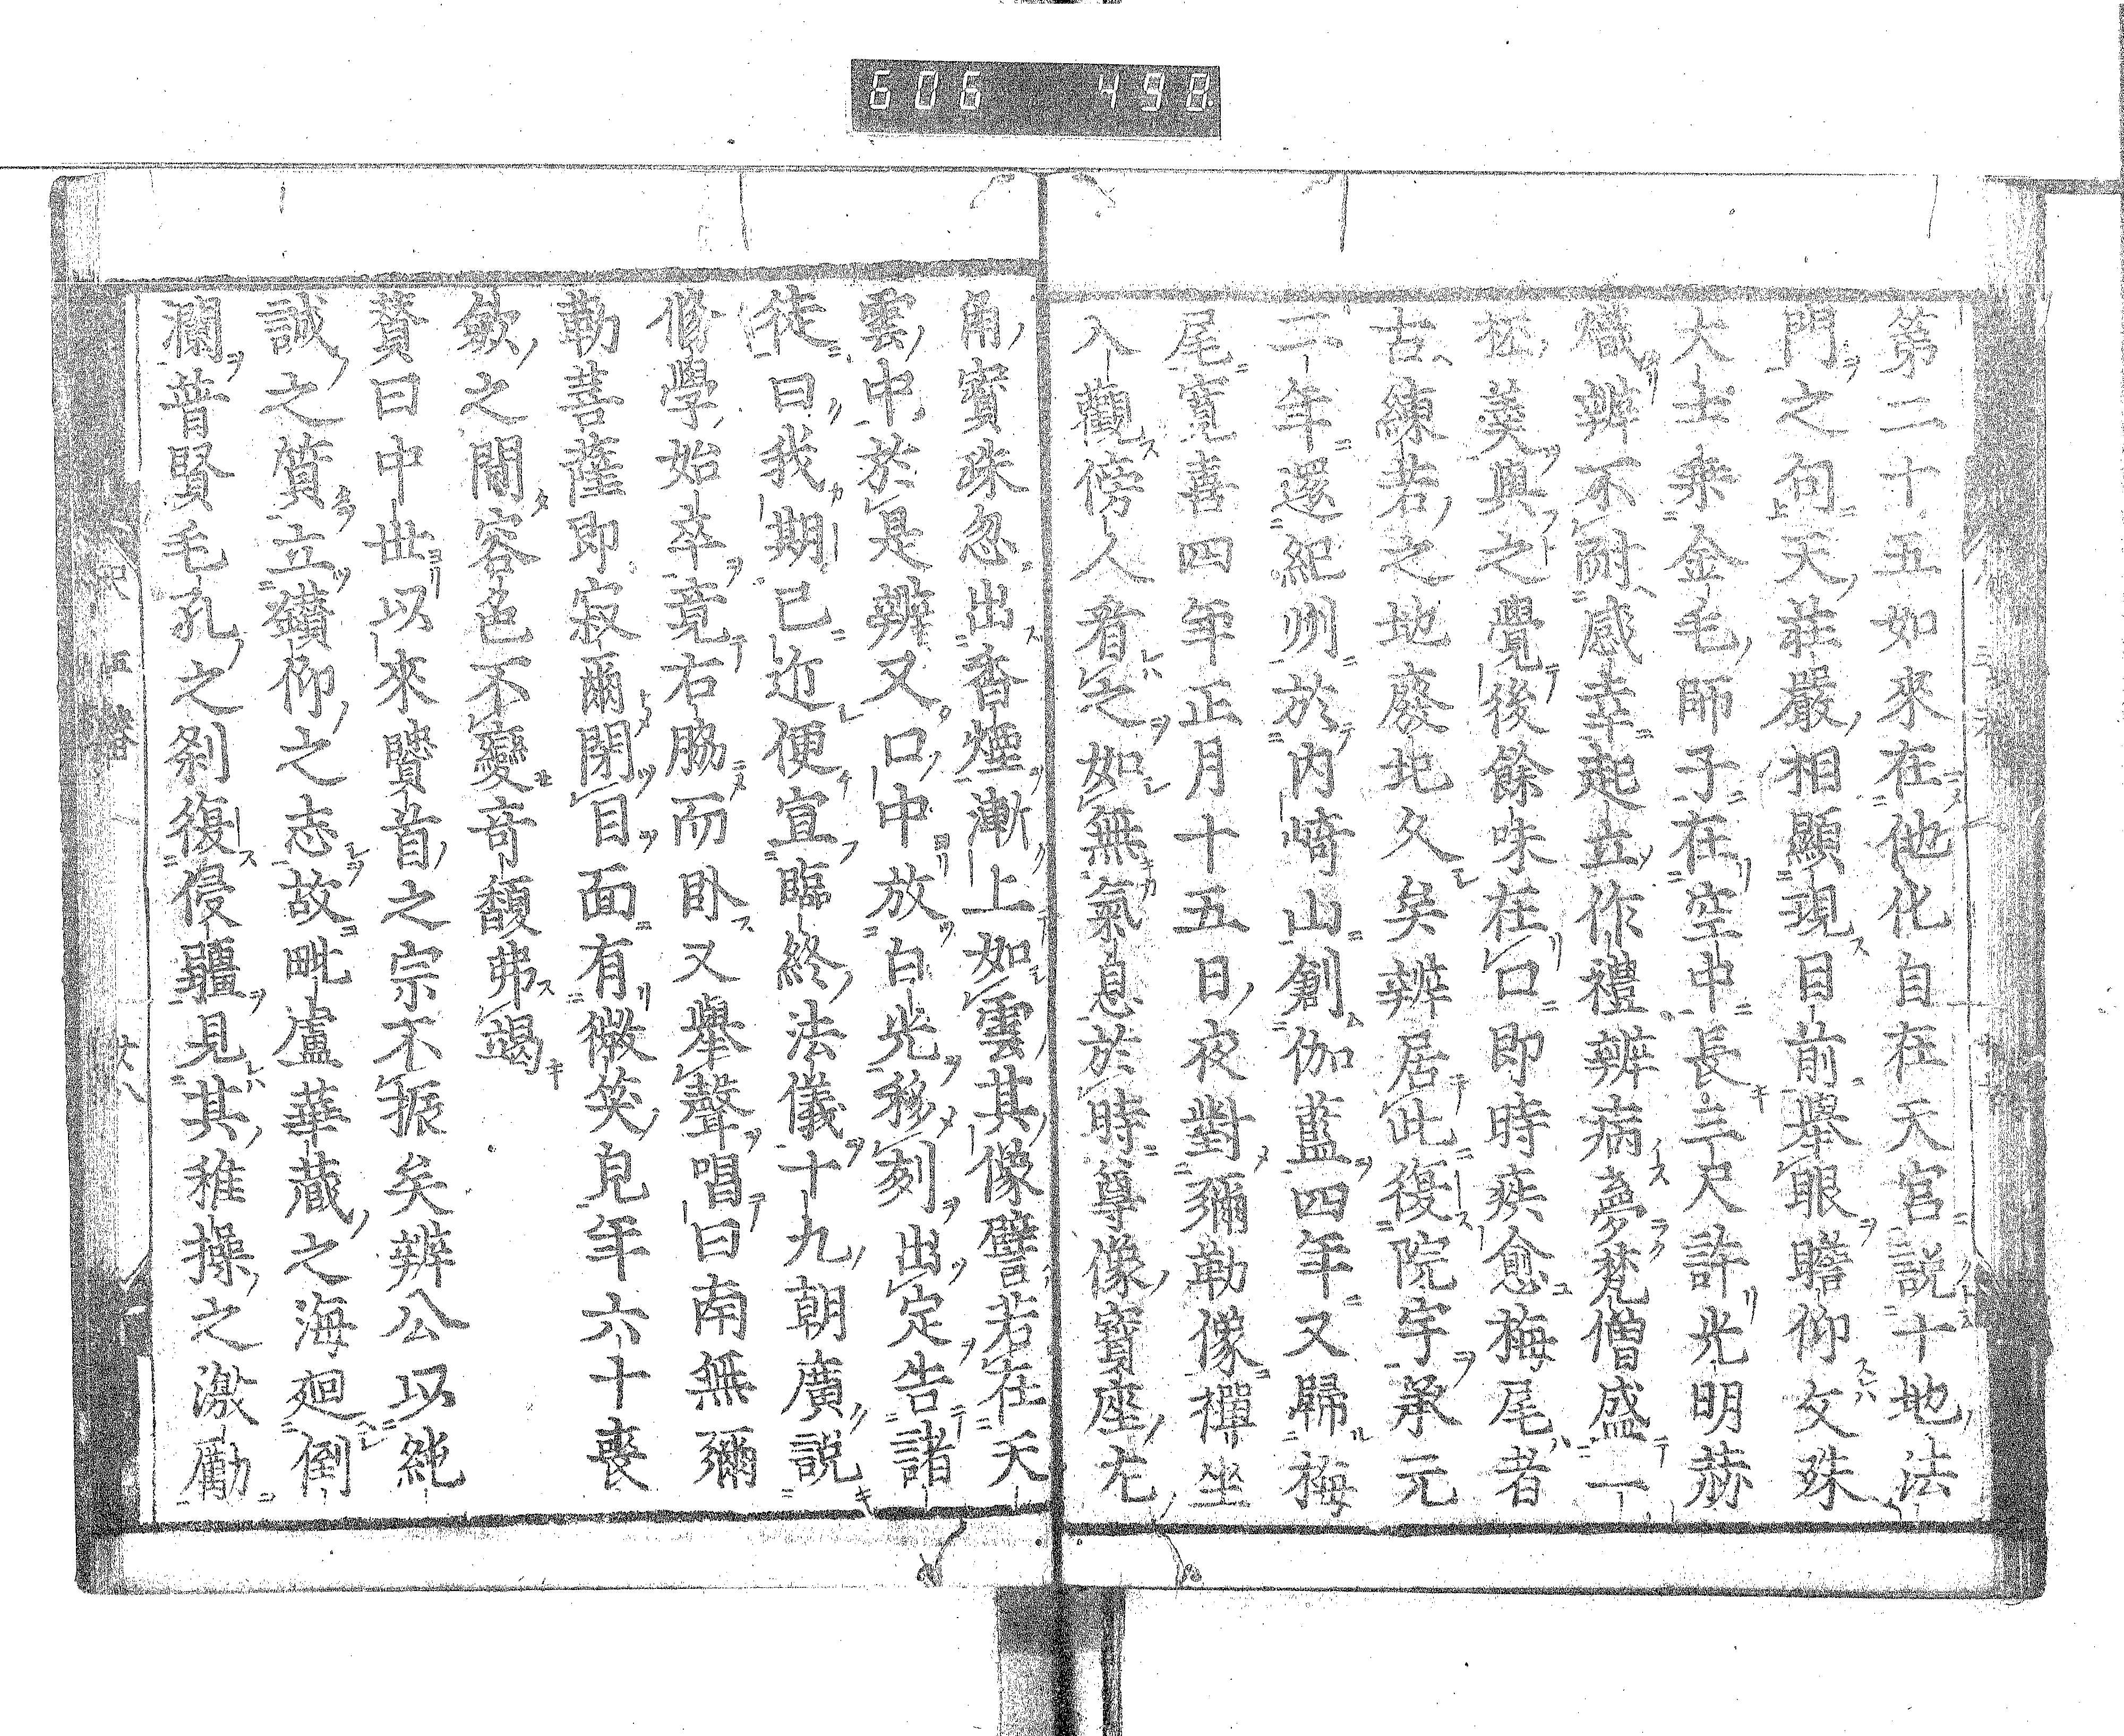 606 498
第二十五如來在他化自在天宮説十地法
門之句天莊嚴相顯現目前舉眼瞻仰文殊
大士乘金毛師子在空中長三尺許光明赫
熾辨不耐感幸起立作禮辨病夢梵僧盛一
羹與之覺後餘味在口即時疾愈梅尾者
古練若之地廢圮久矣辨居此復院宇承元
二年還紀州於内崎山創伽藍四年又歸梅
尾寛喜四年正月十五日夜對彌勒像禪坐
入觀傍人看之如無氣息於時尊像寶座尤
甬寶珠忽出香煙漸上如雲其像譬若在天
雲中於是辨又口中放白光移刻出定告諸
徒曰我期已近便宜臨終法儀十九朝廣説
脩學始卒竟右脇而卧又擧聲唱曰南無彌
勒菩薩即寂爾閉目面有微笑皃年六十喪
斂之間容色不變奇馥弗竭
賛曰中世以來賢首之宗不振矣辨公以純
誠之質立鑚仰之志故毗盧華藏之海廻倒
瀾普賢毛孔之刹復侵疆見其稚操之激勵